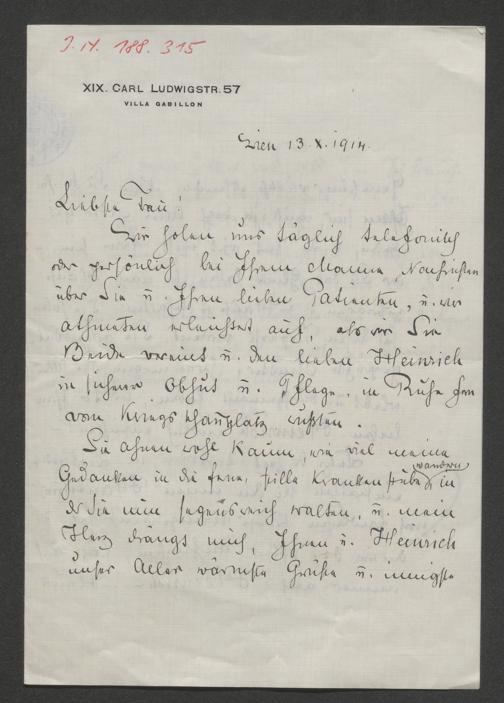 J.N. 188.315
XIX. CARL LUDWIGSTR. 57
VILLA GABILLON
Wien 13.X.1914.
Liebste Frau!
Wir holen uns täglich telefonisch
oder persönlich bei Ihrem Manne, Nachrichten
über Sie u. Ihren lieben Patienten, u. wir
athmeten erleichtert auf, als wir Sie
Beide vereint u. den lieben Heinrich
in sicherer Obhut u. Pflege, in Ruhe fern
vom Kriegsschauplatz wußten.
Sie ahnen wohl kaum, wie viel meine
Gedanken in die ferne, stille Krankenstube wandern, in
der Sie nun segensreich walten, u. mein
Herz drängt mich, Ihnen u. Heinrich
unser Aller wärmste Grüße u. innigste